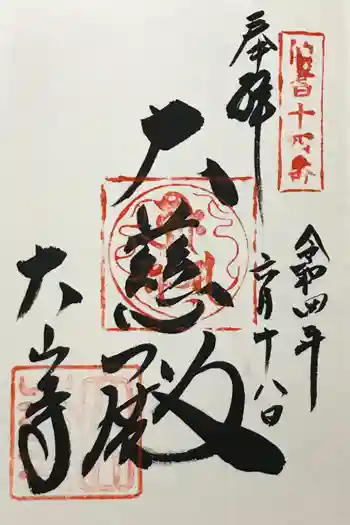 十四番
奉拝
令和四年
六月十八日
大慈殿
大山寺